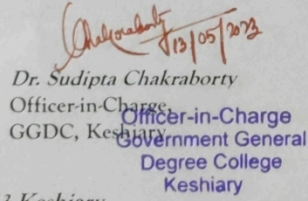 Chakraborty
13/05/2023
Dr. Sudipta Chakraborty
Officer-in-Charge,
GGDC, Keshiary
Officer-in-Charge
Government General
Degree College
Keshiary